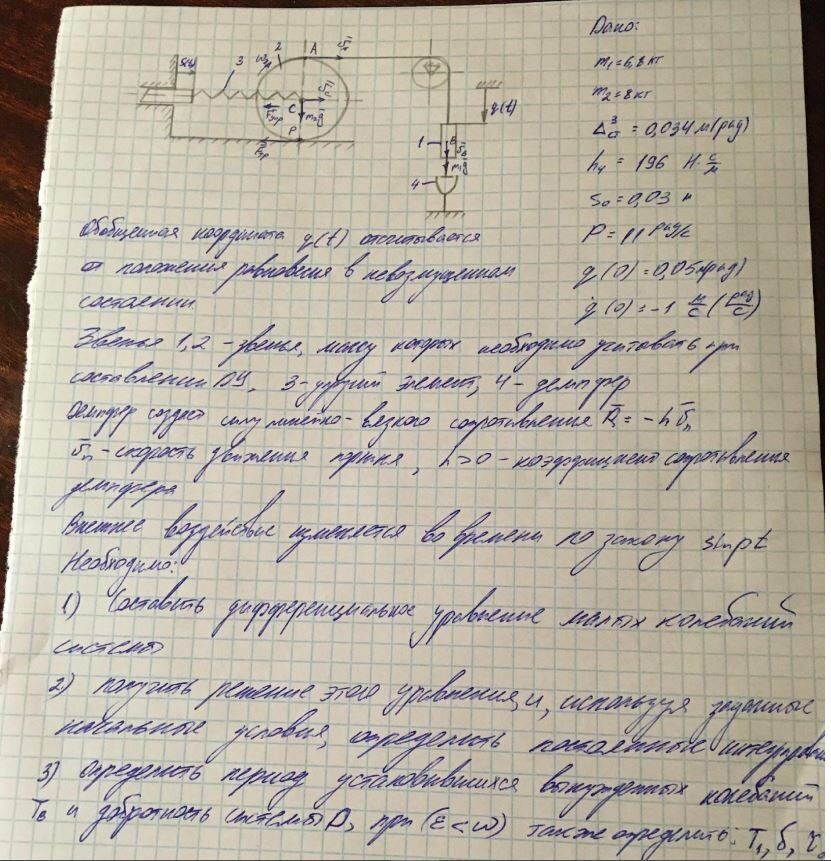 Дано:
m₁ = 6,8 кг
m₂ = 8 кг
Δ³ст = 0,034 м(рад)
h₄ = 196 Н·с/м
s₀ = 0,03 м
P = 11 рад/с
q(0) = 0,05 м(рад)
q̇(0) = -1 м/с (рад/с)
S(t) 3 2 A
C
m₂g
Fупр
P
Fтр
q(t)
1 B
m₁g
4
Обобщенная координата q(t) отсчитывается
от положения равновесия в невозмущенном
состоянии.
Звенья 1,2 - звенья, массу которых необходимо учитывать при
составлении ДУ, 3-упругий элемент, 4 - демпфер
Демпфер создает силу линейно-вязкого сопротивления R̄ = -hῡп
ῡп - скорость движения поршня, h>0 - коэффициент сопротивления
демпфера
Внешнее воздействие изменяется во времени по закону sin pt
Необходимо:
1) Составить дифференциальное уравнение малых колебаний
системы
2) получить решение этого уравнения, и, используя заданные
начальные условия, определить постоянные интегрирования
3) определить период установившихся вынужденных колебаний
Tв и добротность системы D, при (ε<ω) также определить: T₁, δ,